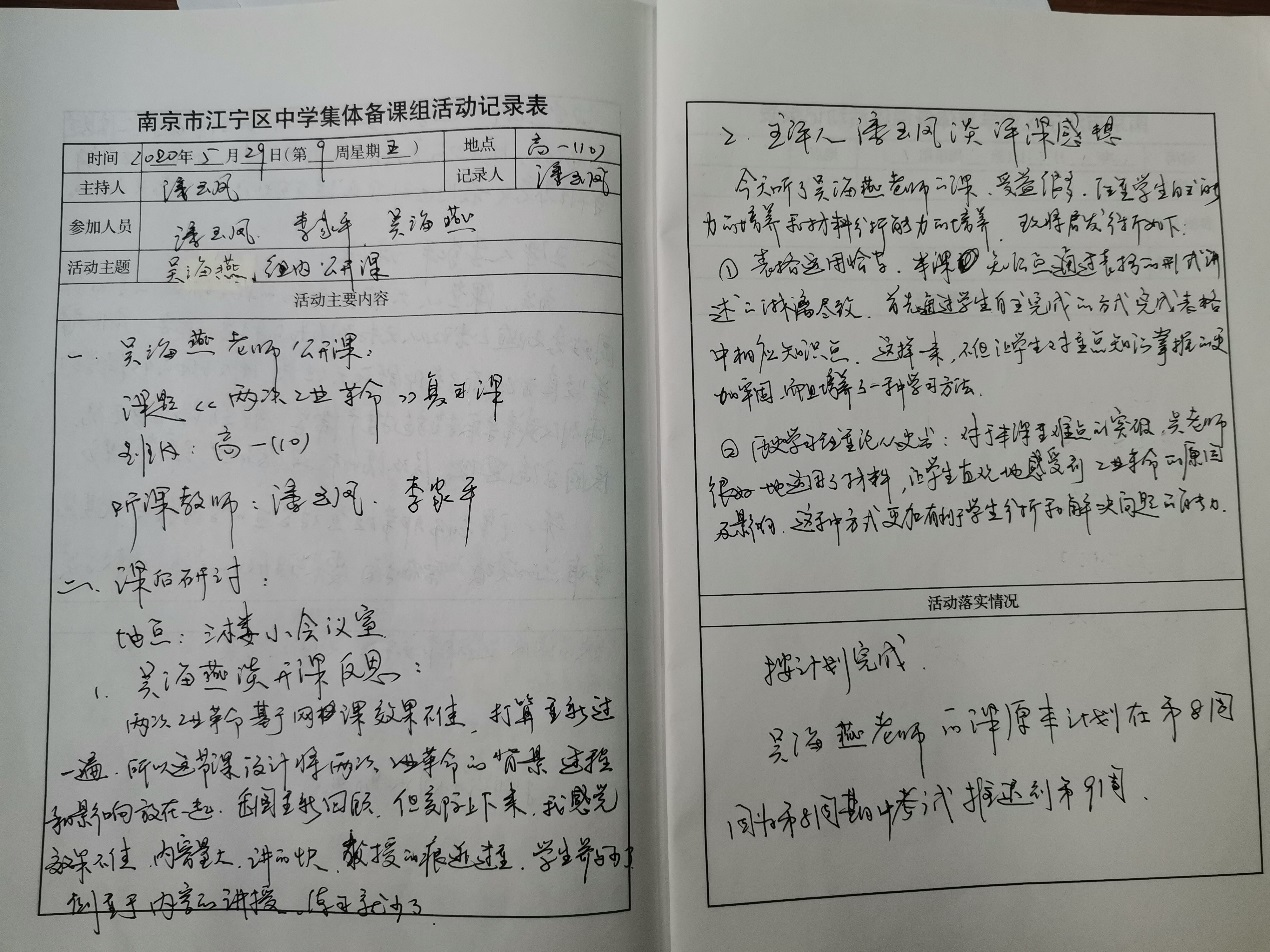 南京市江宁区中学集体备课组活动记录表
时间 2020年 5 月 29 日(第 9 周星期 五 ) 地点 高一(10)
主持人 潘玉凤 记录人 潘玉凤
参加人员 潘玉凤. 李家平. 吴海燕
活动主题 吴海燕 组内公开课
活动主要内容
一. 吴海燕老师公开课:
课题《两次工业革命》复习课
班级: 高一(10)
听课教师: 潘玉凤. 李家平
二、课后研讨:
地点: 三楼小会议室
1. 吴海燕谈开课反思:
两次工业革命基于网课效果不佳, 打算重新过
一遍. 所以这节课设计将两次工业革命的背景 过程
和影响放在一起. 重新回顾. 但实际上下来, 我感觉
效果不佳. 内容量大. 讲的快. 教授的痕迹过重, 学生参与少了
侧重于内容的讲授、练习就少了
2. 主评人潘玉凤谈评课感想
今天听了吴海燕老师的课, 受益很多. 注重学生自主能
力的培养和材料分析能力的培养. 现将启发分析如下:
① 表格运用恰当. 本课知识点通过表格的形式讲
述的淋漓尽致. 首先通过学生自主完成的方式完成表格
中相应知识点. 这样一来, 不但让学生对重点知识掌握的更
加牢固, 而且培养了一种学习方法.
历史学习注重论从史出: 对于本课重难点的突破, 吴老师
很好地运用了材料, 让学生直观地感受到工业革命的原因
及影响. 这种方式更加有利于学生分析和解决问题的能力.
活动落实情况
按计划完成.
吴海燕老师的课原本计划在第8周
因为第8周期中考试推迟到第9周.